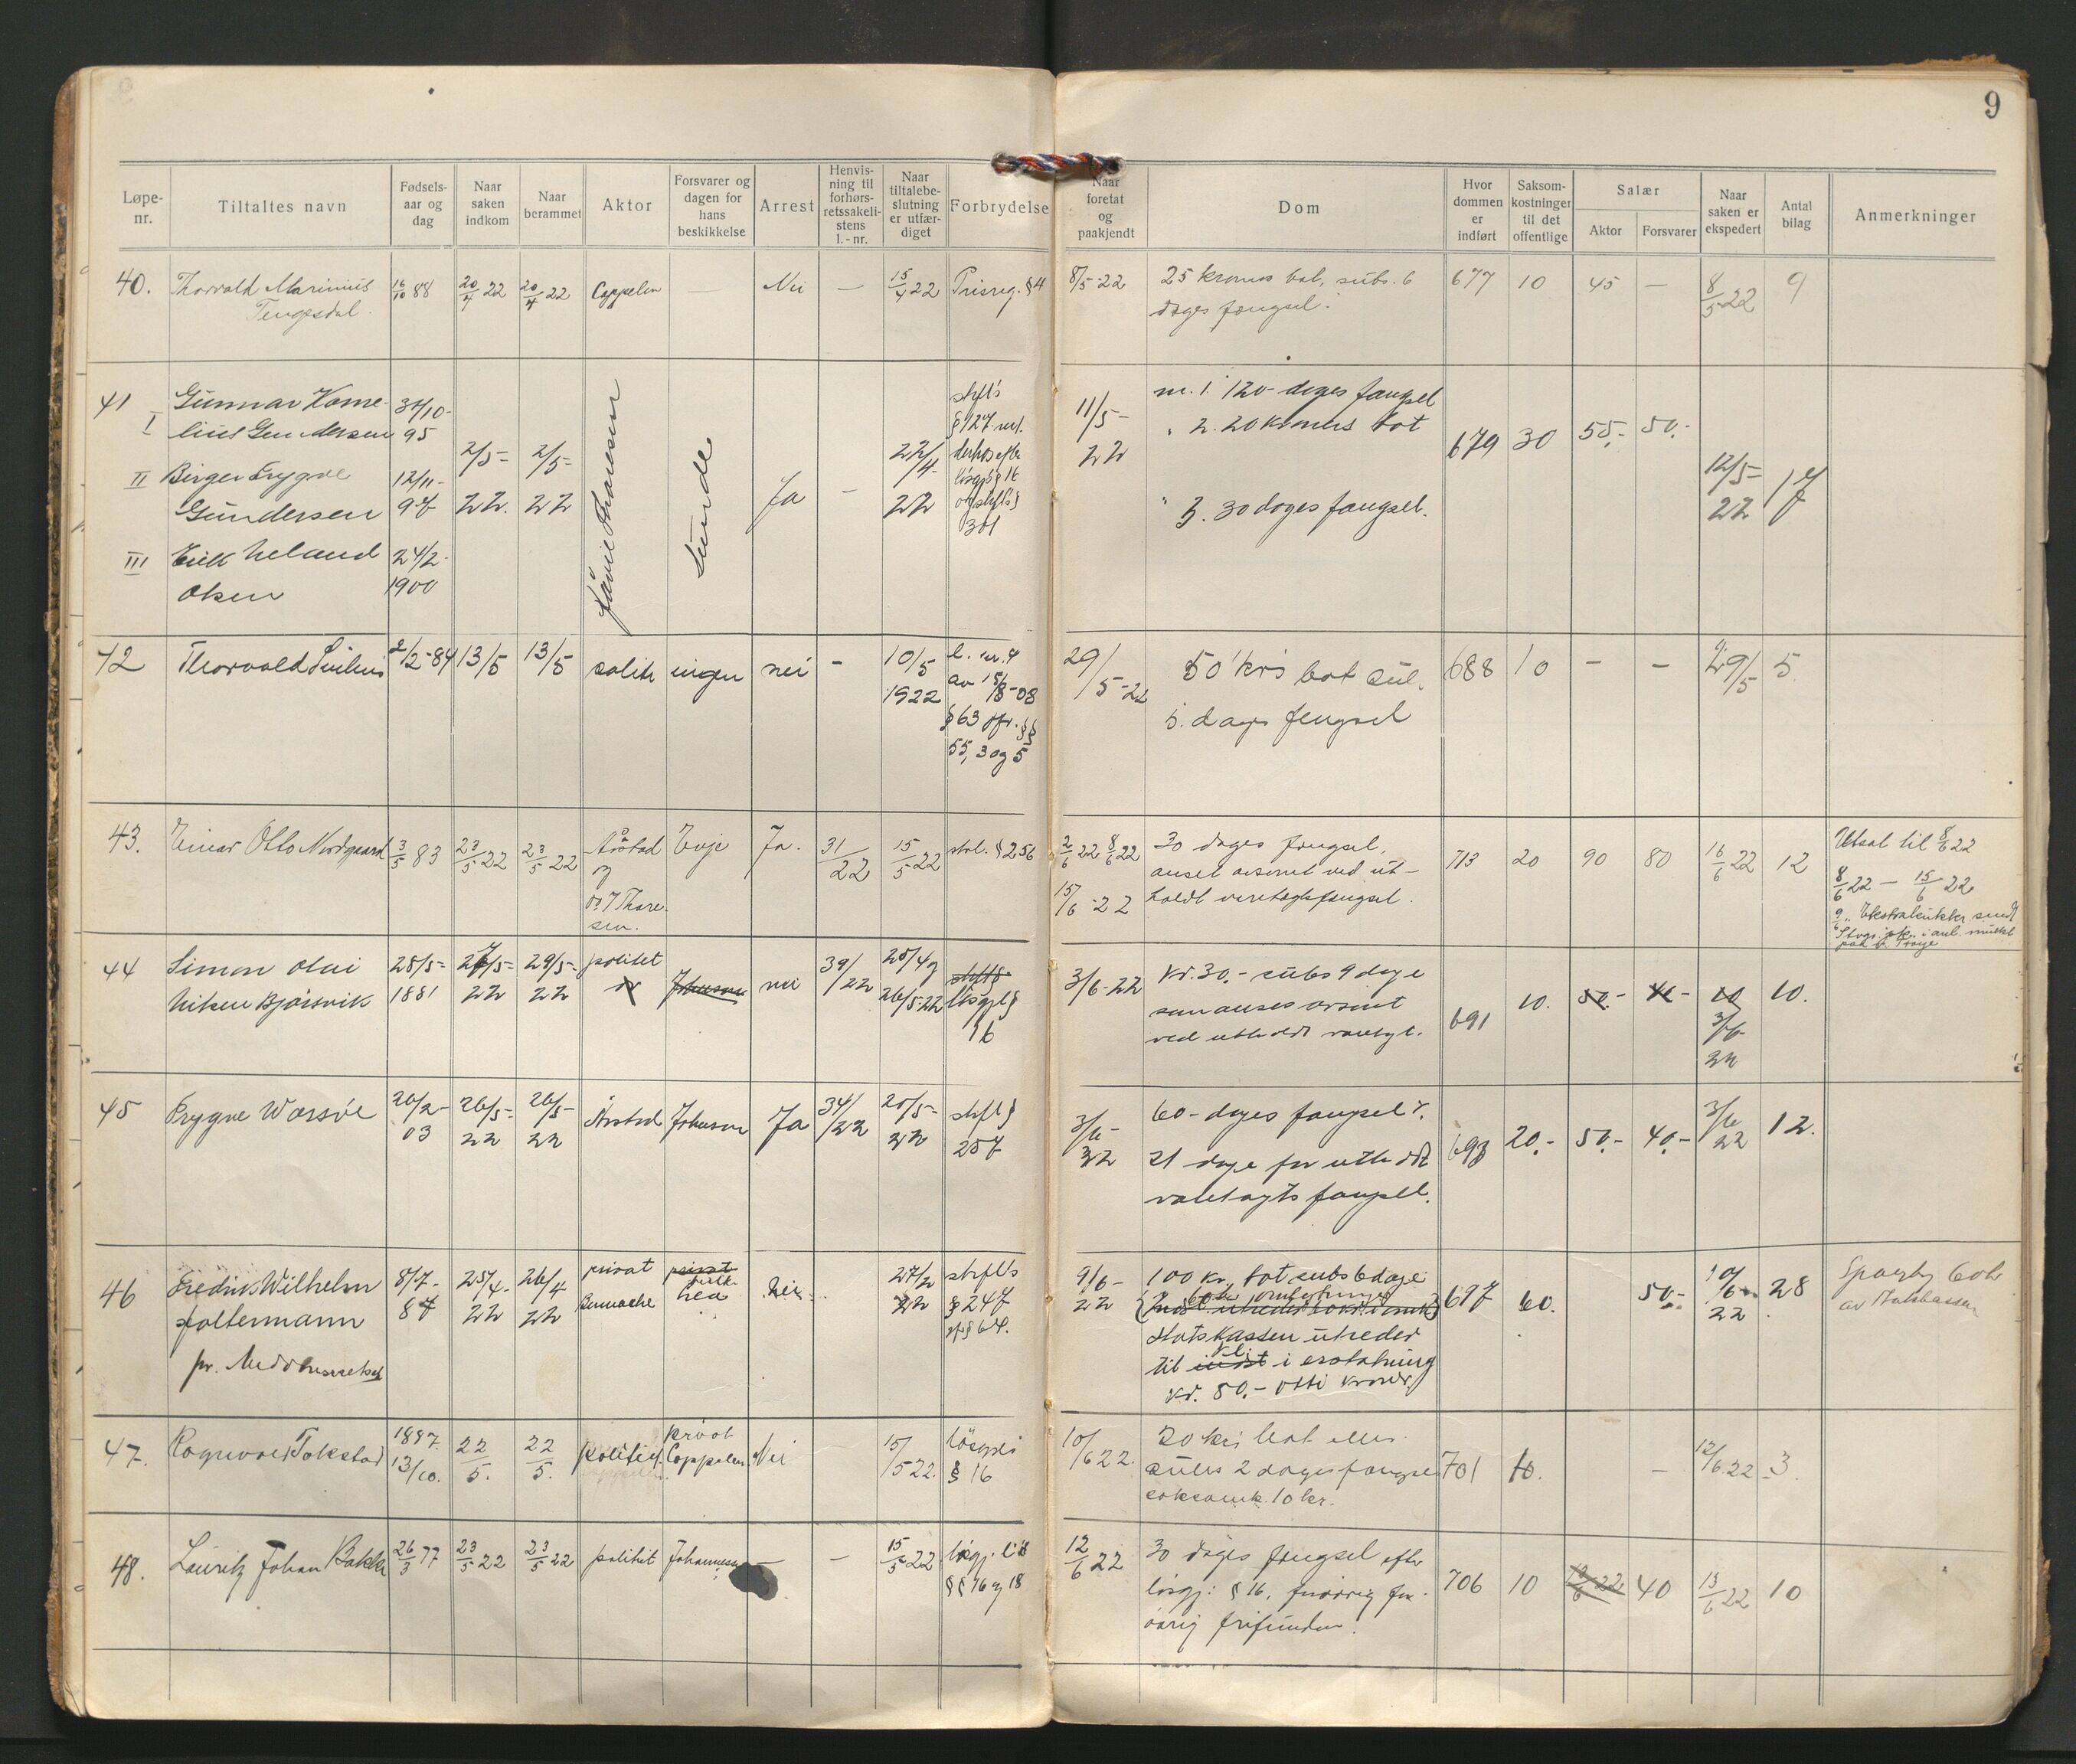 9
Løpe-nr.
Tiltaltes navn
Fødsels-aar og dag
Naar saken indkom
Naar berammet
Aktor
Forsvarer og dagen for hans beskikkelse
Arrest
Henvis-ning til forhørs-retssakeli-stens l.-nr.
Naar tiltalebe-slutning er utfær-diget
Forbrydelse
Naar foretat og paakjendt
Dom
Hvor dommen er indført
Saksom-kostninger til det offentlige
Salær
Aktor
Forsvarer
Naar saken er ekspedert
Antal bilag
Anmerkninger
40. Thorvald Marinius 16/10 88 20/4 22 20/4 22 Cappelen — Nei — 15/4 22 Prisreg. §4 8/5-22 25 kroners bot, subs. 6 677 10 45 — 8/5 22 9
Tengesdal. dages fængsel.
41 I Gunnar Korne- 31/10- 11/5- nr. 1. 120 dages fængsel
lius Gundersen 95 2/5- 2/5- 22/4- 22 " 2. 20 kroners bot 679 30 55.- 50.-
II Birger Trygve 12/11- 22. 22 Ja - 22 12/5- 17
Gundersen 97 Sunde 301 " 3. 30 dages fængsel. 22
III Erik Meland 24/2-
Olsen 1900
42 Thorvald 2/2-84 13/5 13/5 politi ingen nei - 10/5 l. nr. 4 29/5-22 50 kr's bot sub. 688 10 - - 29/5 5
1922 av 15/8-08 5. dages fengsel
§63 jfr. §§
55, 3 og 5
43. Einar Otto Nordgaard 3/5 83 23/5 22 23/5 22 Årstad Evje Ja. 31/22 15/5 22 stral. §256 2/6 22 8/6 22 30 dages fængsel, 713 20 90 80 16/6 22 12 Utsat til 8/6 22
og anset avsonet ved ut- 8/6 22 — 15/6 22
Thore- 15/6-22 holdt varetægtsfængsel.
sen.
44 Simon Olai 28/5- 27/5- 29/5- politet Johnsen nei 39/22 25/4 og strfl § 3/6-22 Kr. 30.- subs 9 dage 691 10. 50.- 10.
Nilsen Bjørsvik 1881 22 22 26/5-22 løsgjl § som anses avsont 3/6
16 ved utholdt varetgt. 22
45 Trygve Wassöe 20/2- 26/5- 26/5- Årstad Johnsen Ja 34/22 20/5- strfl § 3/6- 60 dages fængsel 693 20.- 50.- 40.- 3/6 12.
03 22 22 22 257 22 21 dage for utholdt 22
varetægts fængsel.
46 Fredrik Wilhelm 8/7- 25/4- 26/4 privat privat Nei. 27/2 strfl's 9/6- 100 kr. bot subs 6 dage 697 60. 50.- 10/6 28
Holtermann 87 22 22 22 §247 22 22
pr. Meddomsretssak Statskassen utreder
til i erstatning
kr. 80.- otti kroner
47. Ragnvald Tokstad 1897. 22 22 politiet. privat Nei 15/5 22. løsgjl 10/6 22. 20 kr's bot eller 701 10. — 12/6 22 3.
13/10. 5. 5. Cappelen § 16 subs 2 dages fængsel
saksomk. 10 kr.
48. Lauritz Johan Bakke 26/3 77 23/5 22 23/5 22 politiet Johannesen — — 15/5 22 løsgj. l's 12/6 22 30 dages fængsel efter 706 10 13/6 22 40 13/6 22 10
§§ 16 og 18 løsgj: §16, for
øvrig frifunden.